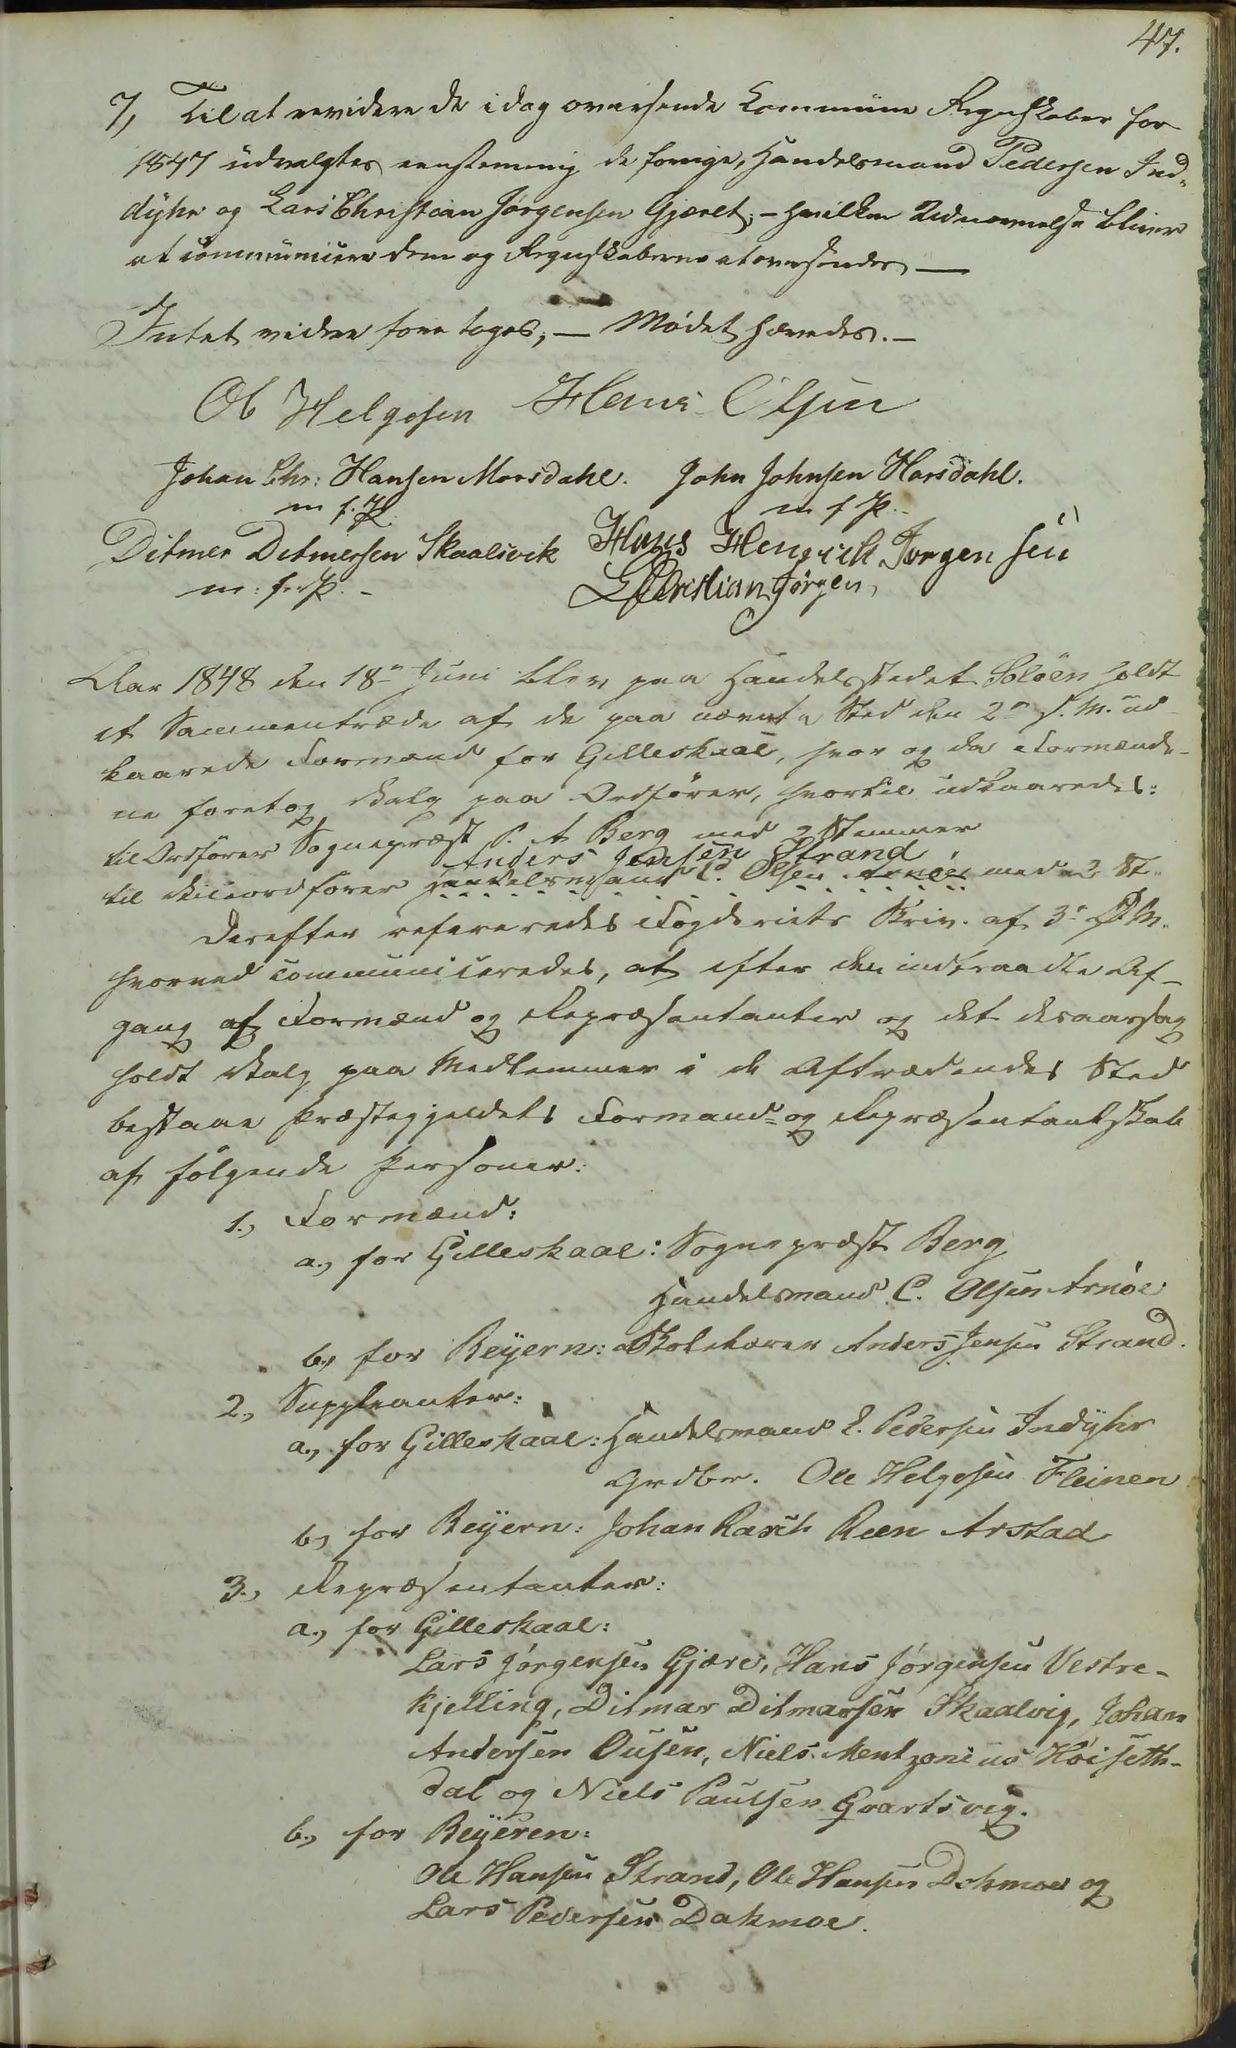 47.
7, Til at revidere de idag oversendte Commune Regnskaber for
1847 udvalgtes eenstemmig de forrige, Handelsmand Pedersen Ind-
dyhr og Lars Christian Jørgensen Gjæret; – hvilken Udnævnelse bliver
at communicere dem og Regnskaberne at oversendes —
Intet videre foretoges; — Mødet hævedes. –
Ol Helgesen Hans Olsen
Johan Chr: Hansen Moersdahl. John Johnsen Harsdahl.
m f. P. m f P. -
Ditmer Ditmersen Skaalsvik Hans Henrich Jørgensen
m: f: P. - L Christian Jørgen,
Aar 1848 den 18de Juni blev paa Handelsstedet Soløen holdt
et Sammentræde af de paa nævnte Sted den 2den d. M. ud-
kaarede Formænd for Gilleskaal, hvor og da Formænde-
ne foretog Valg paa Ordfører, hvortil udkaaredes:
til Ordfører Sognepræst P. A Berg med 2 Stemmer
Anders Jensen Strand
til Viceordfører Handelsmand C. Olsen Arnøe med 2 St.
Derefter refereredes Fogderiets Skriv. af 3de d. M.
hvorved communiceredes, at efter den indtraadte Af-
gang af Formænd og Repræsentanter og det desaarsag
holdt Valg paa Medlemmer i de Aftrædendes Sted
bestaae Præstegjeldets Formand- og Repræsentantskab
af følgende Personer:
1., Formænd:
a., for Gilleskaal: Sognepræst Berg
Handelsmand C. Olsen Arnøe
b., for Beyern: Skolelærer Anders Jensen Strand.
2., Suppleanter:
a., for Gilleskaal: Handelsmand E. Pedersen Indyhr
Grdbr. Ole Helgesen Fleinen
b., for Beyern: Johan Rasch Reen Arstad
3., Repræsentanter:
a., for Gilleskaal:
Lars Jørgensen Gjære, Hans Jørgensen Vestre-
kjelling, Ditmar Ditmarsen Skaalvig, Johan
Andersen Ousen, Niels Mentzonius Høiseth-
dal og Niels Paulsen Qvartsvig.
b., for Beyeren:
Ole Hansen Strand, Ole Hansen Dokmoe og
Lars Pedersen Dakmoe.